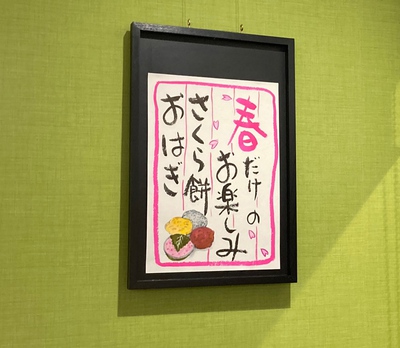 春だけの
お楽しみ
さくら餅
おはぎ